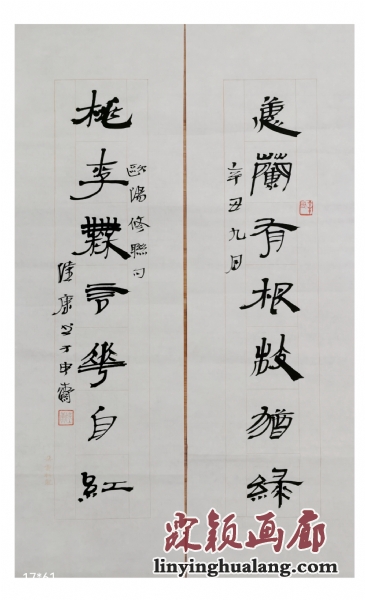 惠蘭有根枝猶綠
辛丑九月
桃李無言華自紅
歐陽修聯句
陸康书于申齋
霖颖画廊
linyinghualang.com
17*61